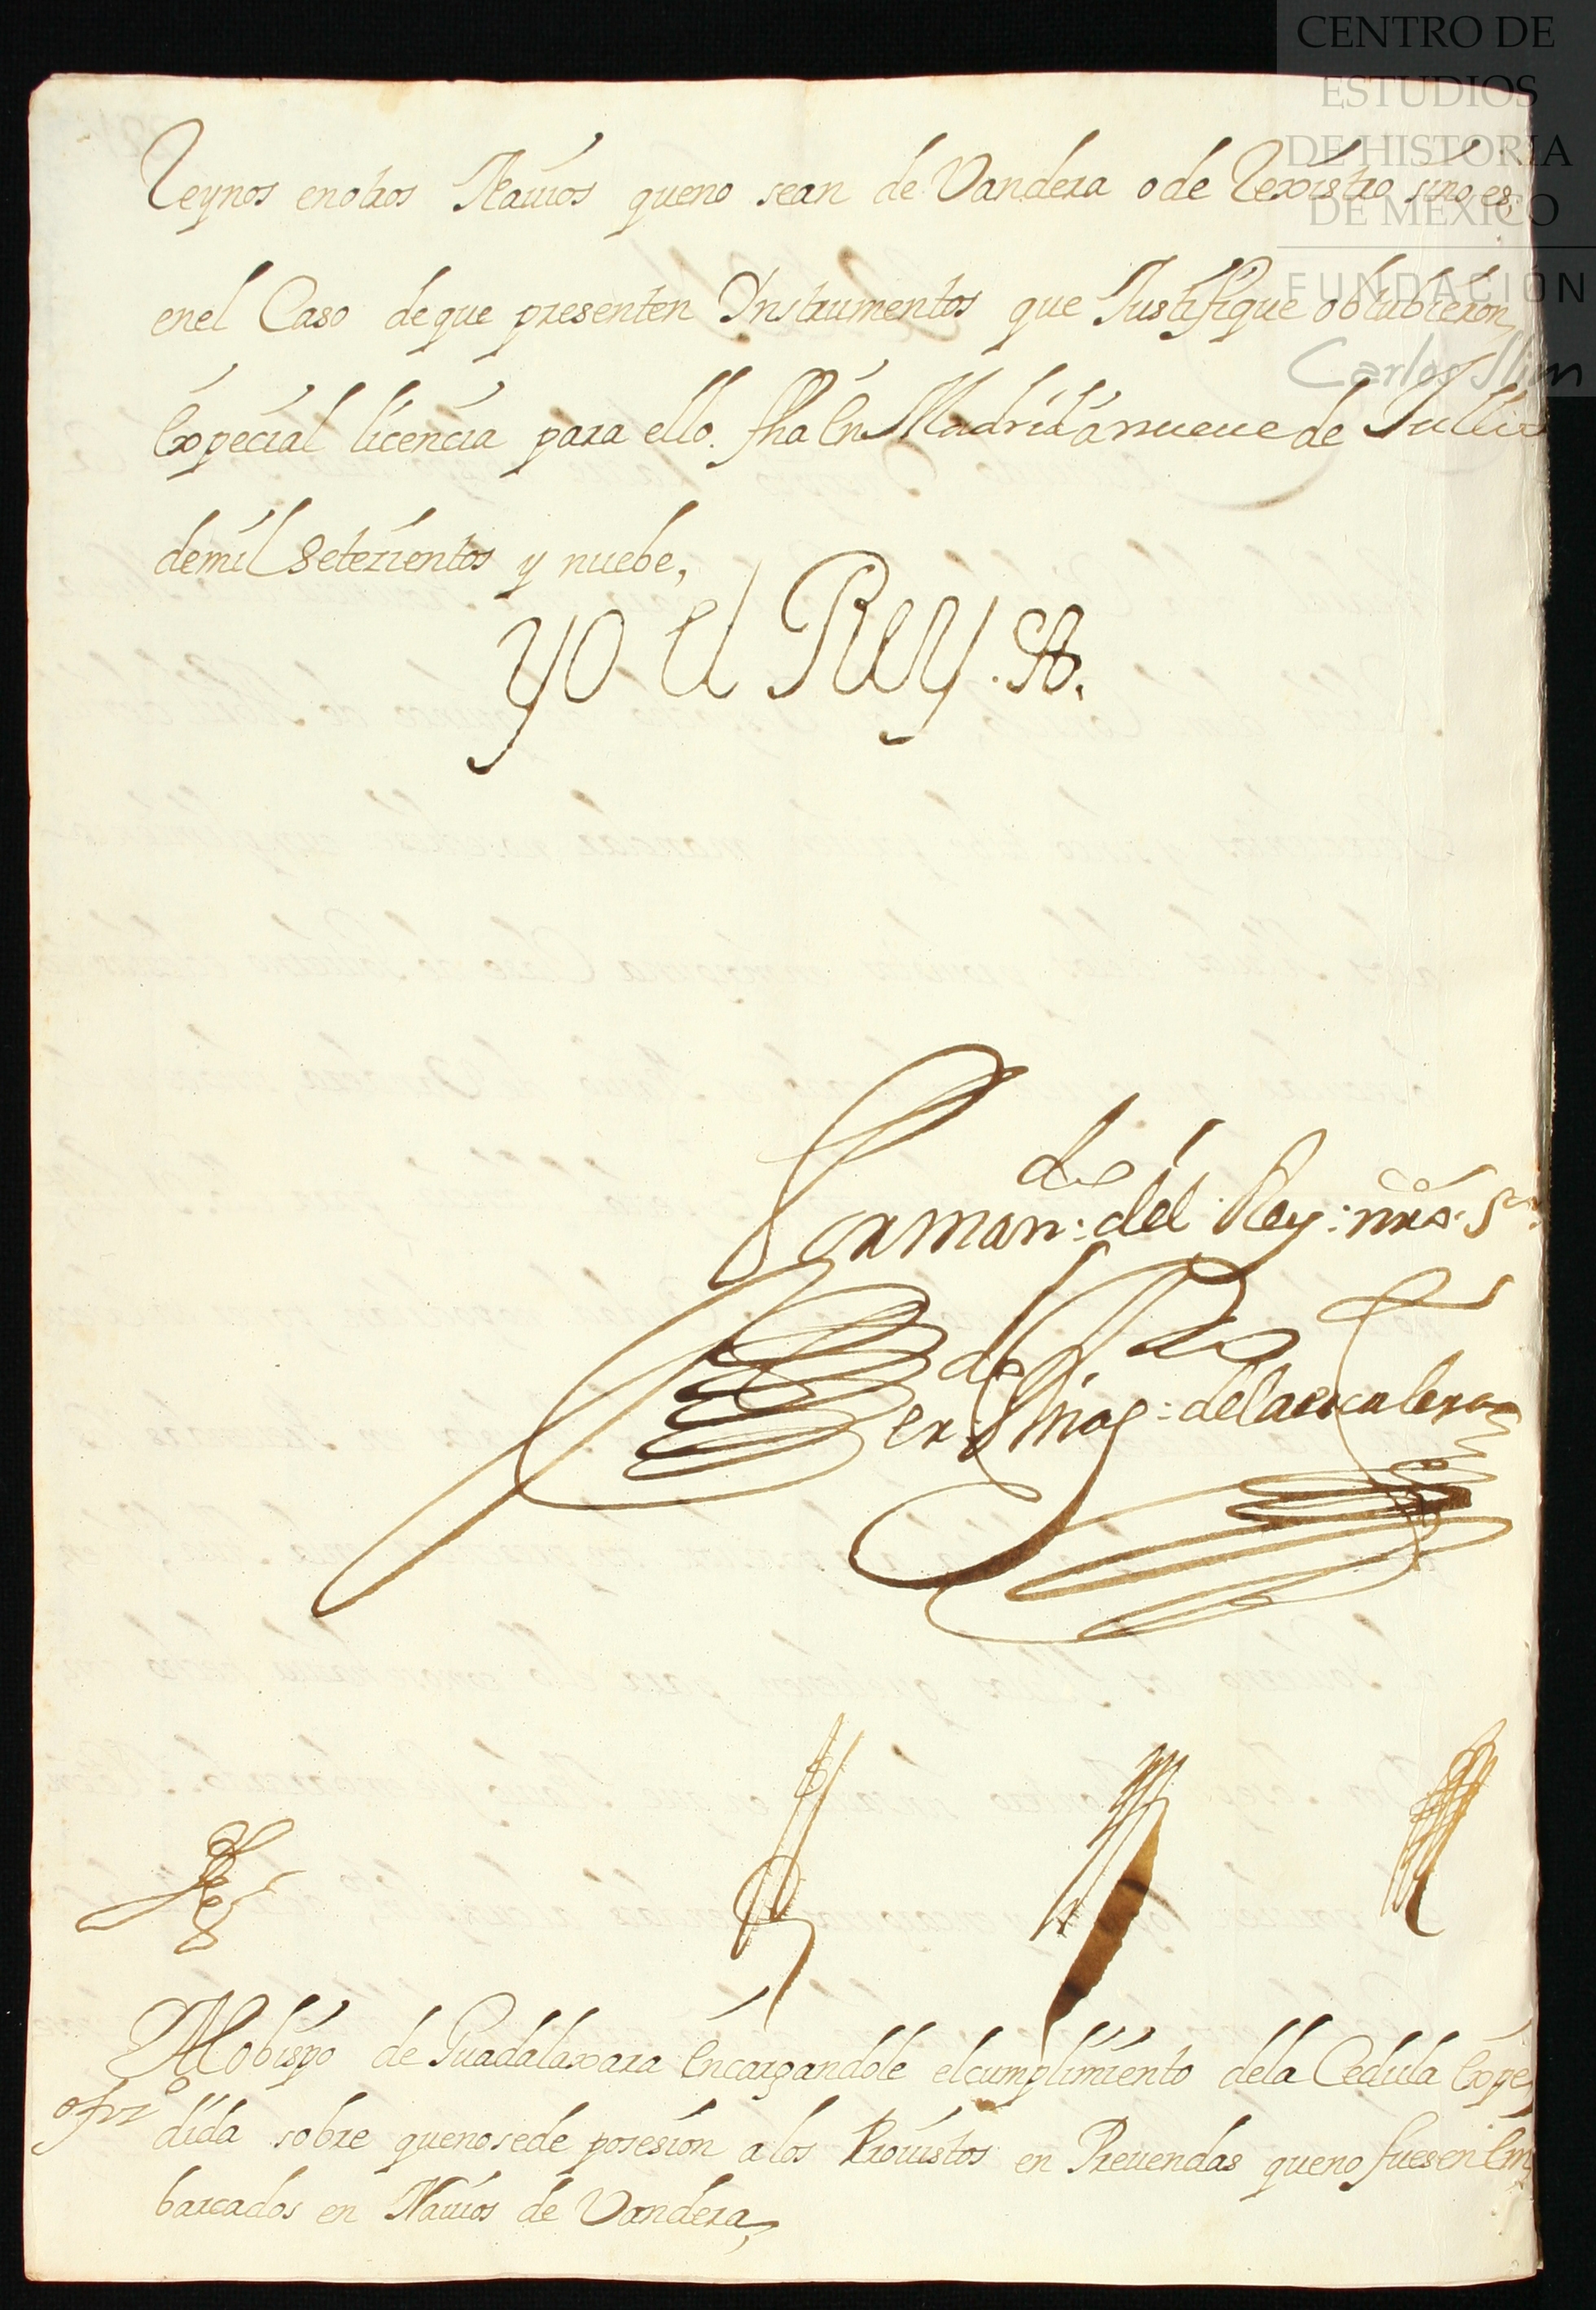 CENTRO DE
ESTUDIOS
DE HISTORIA
DE MEXICO
FUNDACIÓN
Carlos Slim
Reynos enotros Nauios queno sean de Vandera o de Rexistro sino es,
enel Caso deque presenten Ynstrumentos que Justifique obtubieron
Expecial licencia para ello. fha En Madrid a nueue de Jullio
demil Setezientos y nuebe,
yo el Rey.
Por mando: del Rey: nro. Sr.
Ber.do Tinag.ro: delaescalera
Al obispo de Guadalaxara Encargandole elcumplimiento dela Cedula Expe,
ofiz.o dida sobre quenosede posesion a los Prouistos en Preuendas queno fuesen Em,
barcados en Nauios de Vandera,